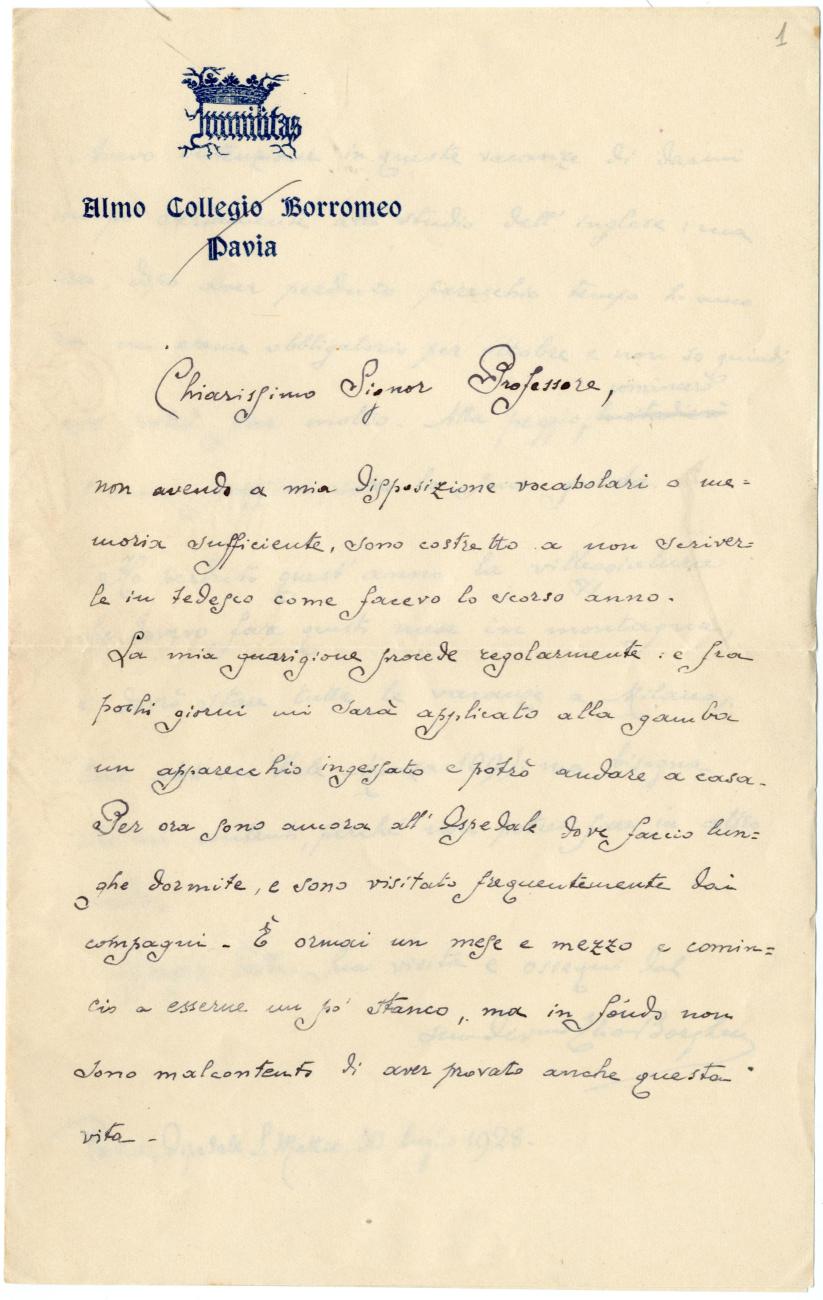 1
Humilitas
Almo Collegio Borromeo
Pavia
Chiarissimo Signor Professore,
non avendo a mia disposizione vocabolari o me=
moria sufficiente, sono costretto a non scriver=
le in tedesco come facevo lo scorso anno.
La mia guarigione procede regolarmente: e fra
pochi giorni mi sarà applicato alla gamba
un apparecchio ingessato e potrò andare a casa.
Per ora sono ancora all'Ospedale dove faccio lun=
ghe dormite, e sono visitato frequentemente dai
compagni - È ormai un mese e mezzo e comin=
cio a esserne un po' stanco, ma in fondo non
sono malcontento di aver provato anche questa
vita -